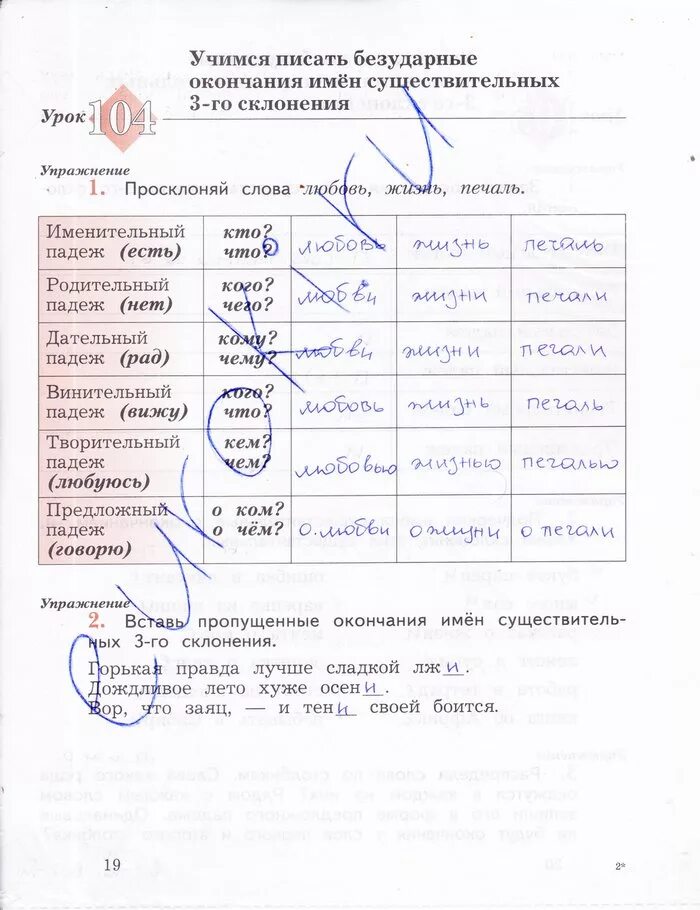 Учимся писать безударные
окончания имён существительных
3-го склонения
Урок 104
Упражнение
1. Просклоняй слова любовь, жизнь, печаль.
Именительный падеж (есть) кто? что? любовь жизнь печаль
Родительный падеж (нет) кого? чего? любви жизни печали
Дательный падеж (рад) кому? чему? любви жизни печали
Винительный падеж (вижу) кого? что? любовь жизнь печаль
Творительный падеж (любуюсь) кем? чем? любовью жизнью печалью
Предложный падеж (говорю) о ком? о чём? о любви о жизни о печали
Упражнение
2. Вставь пропущенные окончания имён существитель-
ных 3-го склонения.
Горькая правда лучше сладкой лжи.
Дождливое лето хуже осени.
Вор, что заяц, — и тени своей боится.
19
2*